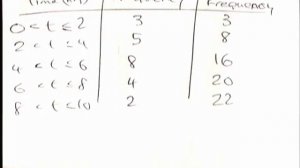 Frequency
0 < t ≤ 2 3 3
2 < t ≤ 4 5 8
4 < t ≤ 6 8 16
6 < t ≤ 8 4 20
8 < t ≤ 10 2 22